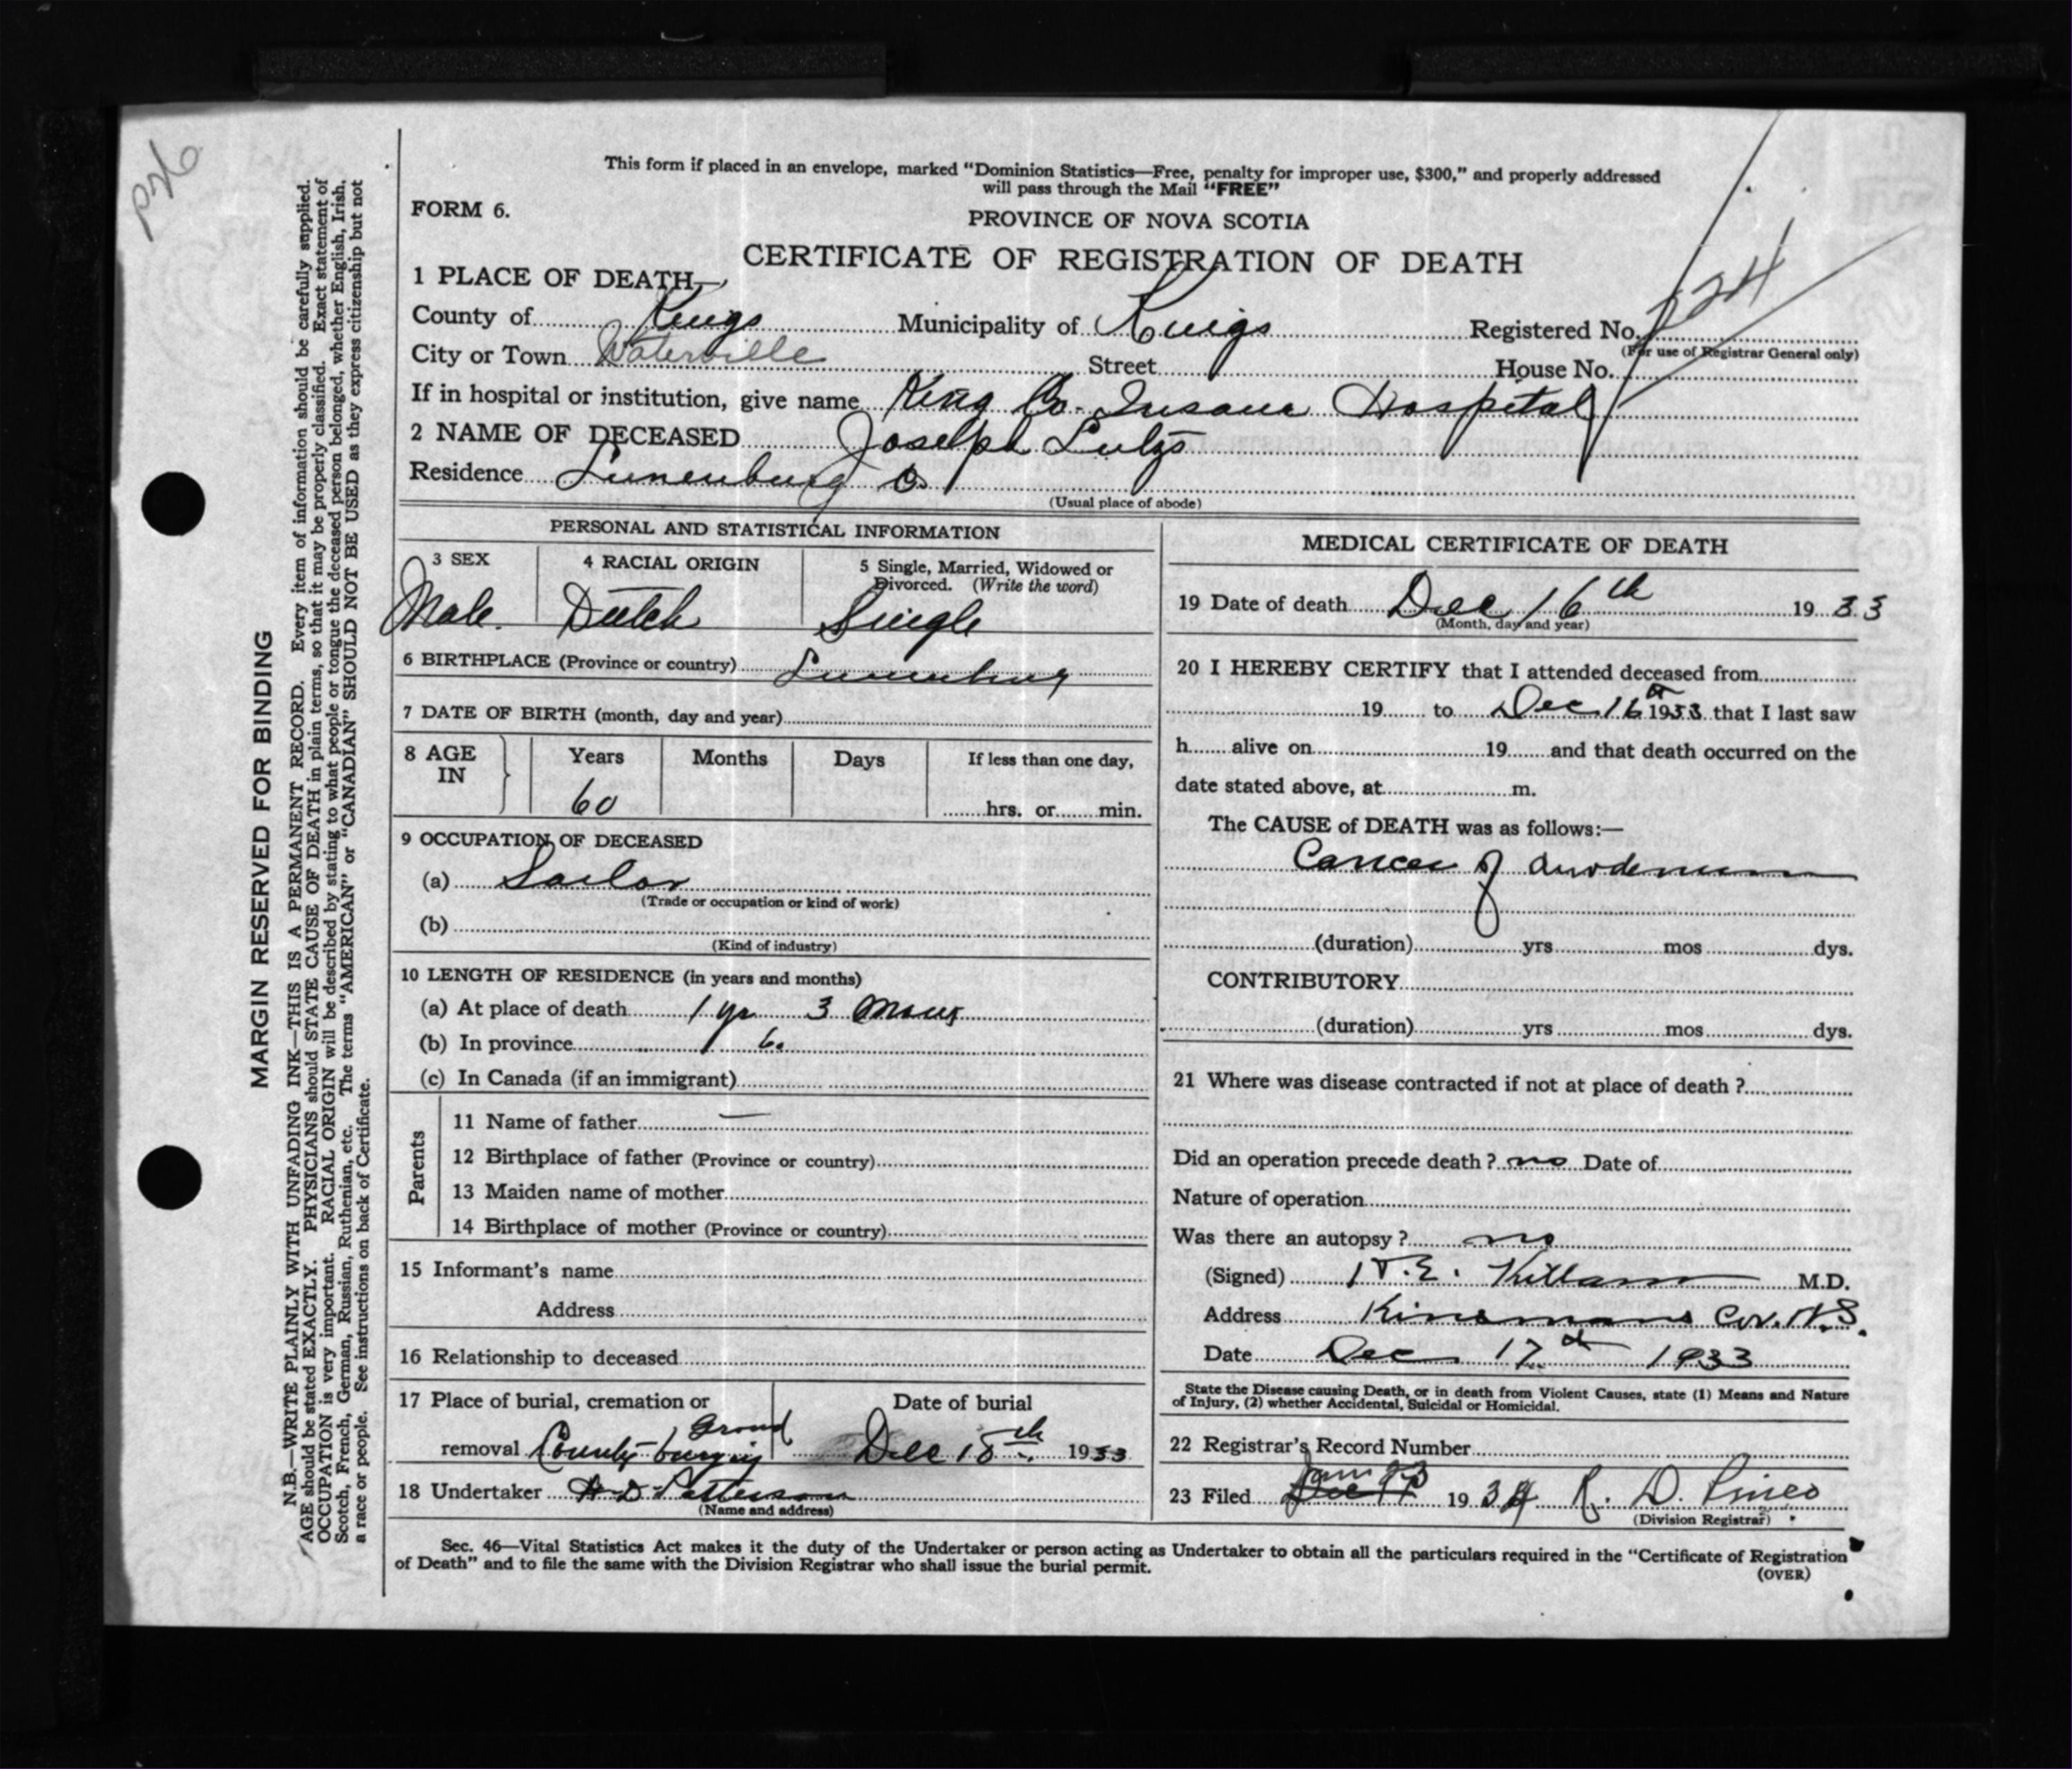 P26
This form if placed in an envelope, marked “Dominion Statistics—Free, penalty for improper use, $300,” and properly addressed
will pass through the Mail “FREE”
FORM 6.
PROVINCE OF NOVA SCOTIA
CERTIFICATE OF REGISTRATION OF DEATH
1 PLACE OF DEATH—
County of Kings Municipality of Kings Registered No. 224
(For use of Registrar General only)
City or Town Waterville Street House No.
If in hospital or institution, give name King Co. Insane Hospital
2 NAME OF DECEASED Joselph Lutzs
Residence Lunenburg Co
(Usual place of abode)
PERSONAL AND STATISTICAL INFORMATION
3 SEX 4 RACIAL ORIGIN 5 Single, Married, Widowed or
Divorced. (Write the word)
Male. Dutch Single
6 BIRTHPLACE (Province or country) Lunenburg
7 DATE OF BIRTH (month, day and year)
8 AGE IN Years Months Days If less than one day,
60 hrs. or min.
9 OCCUPATION OF DECEASED
(a) Sailor
(Trade or occupation or kind of work)
(b)
(Kind of industry)
10 LENGTH OF RESIDENCE (in years and months)
(a) At place of death 1 yr 3 Mons
(b) In province
(c) In Canada (if an immigrant)
Parents
11 Name of father —
12 Birthplace of father (Province or country)
13 Maiden name of mother
14 Birthplace of mother (Province or country)
15 Informant’s name
Address
16 Relationship to deceased
17 Place of burial, cremation or Date of burial
removal County burying Ground Dec 18th 1933
18 Undertaker H D Patterson
(Name and address)
MEDICAL CERTIFICATE OF DEATH
19 Date of death Dec 16th 1933
(Month, day and year)
20 I HEREBY CERTIFY that I attended deceased from
19 to Dec 16th 1933 that I last saw
h alive on 19 and that death occurred on the
date stated above, at m.
The CAUSE of DEATH was as follows:—
Cancer of duodenum
(duration) yrs mos dys.
CONTRIBUTORY
(duration) yrs mos dys.
21 Where was disease contracted if not at place of death ?
Did an operation precede death ? no Date of
Nature of operation
Was there an autopsy ? no
(Signed) E. Killam M.D.
Address Kinsmans Cor. N.S.
Date Dec 17th 1933
State the Disease causing Death, or in death from Violent Causes, state (1) Means and Nature
of Injury, (2) whether Accidental, Suicidal or Homicidal.
22 Registrar’s Record Number
23 Filed Jan 1934 R. D. Pineo
(Division Registrar)
Sec. 46—Vital Statistics Act makes it the duty of the Undertaker or person acting as Undertaker to obtain all the particulars required in the “Certificate of Registration
of Death” and to file the same with the Division Registrar who shall issue the burial permit.
(OVER)
MARGIN RESERVED FOR BINDING
N.B.—WRITE PLAINLY WITH UNFADING INK—THIS IS A PERMANENT RECORD. Every item of information should be carefully supplied.
AGE should be stated EXACTLY. PHYSICIANS should STATE CAUSE OF DEATH in plain terms, so that it may be properly classified. Exact statement of
OCCUPATION is very important. RACIAL ORIGIN will be described by stating to what people or tongue the deceased person belonged, whether English, Irish,
Scotch, French, German, Russian, Ruthenian, etc. The terms “AMERICAN” or “CANADIAN” SHOULD NOT BE USED as they express citizenship but not
a race or people. See instructions on back of Certificate.